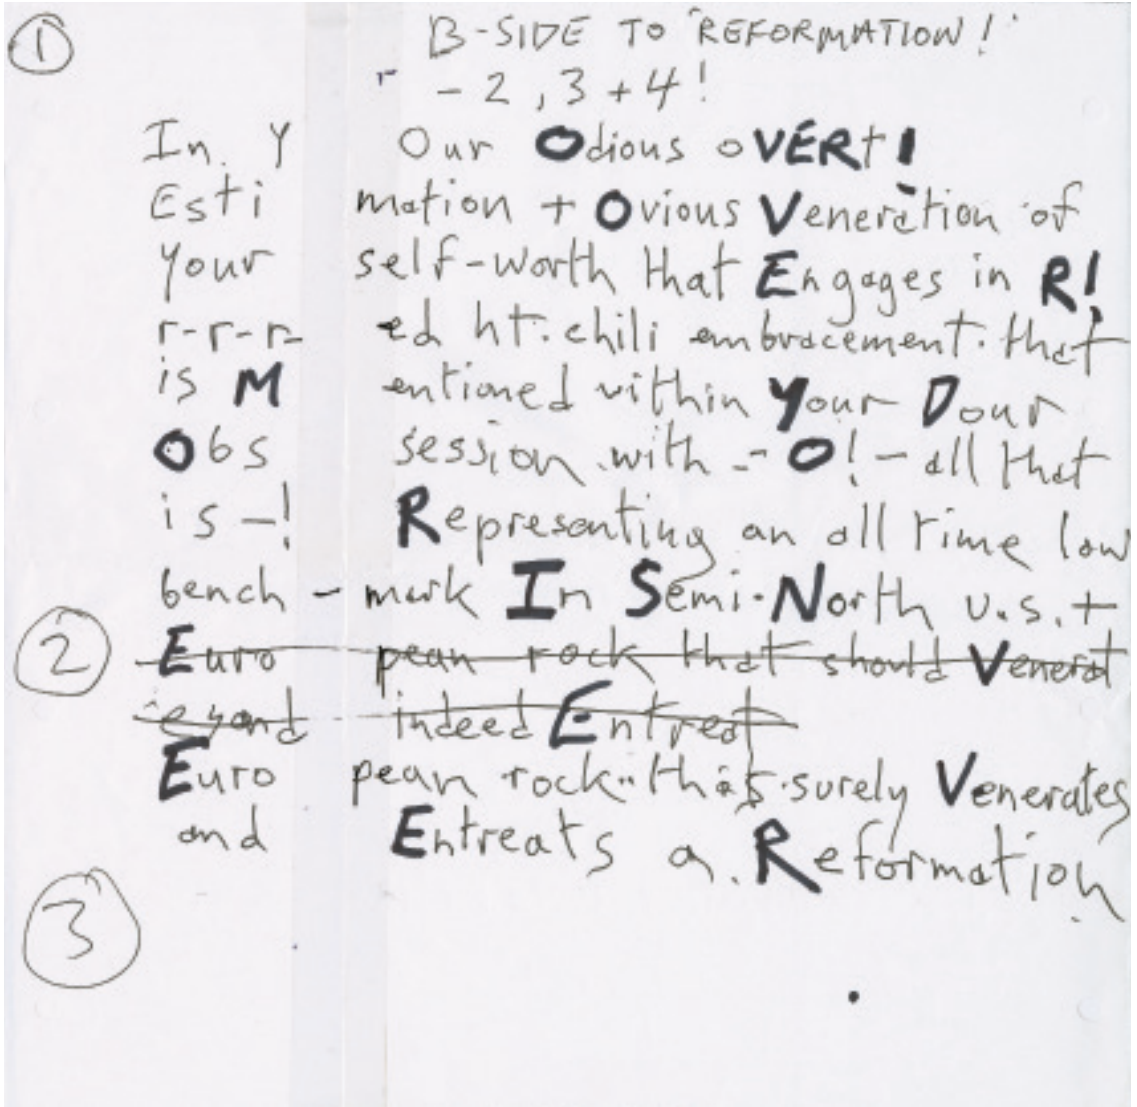 ① B-SIDE TO "REFORMATION!"
- 2, 3 + 4!
In. Y Our Odious oVERt!
Esti mation + Ovious Veneration of
Your self-worth that Engages in R!
r-r-r- ed ht. chili embracement. that
is M entioned within Your Dour
Obs session with -- O! - all that
is -! Representing an all time low
bench - mark In Semi-North U.S. +
② Euro pean rock that should Venerat
eyand indeed Entreat
Euro pean rock that surely Venerates
and Entreats a Reformation
③